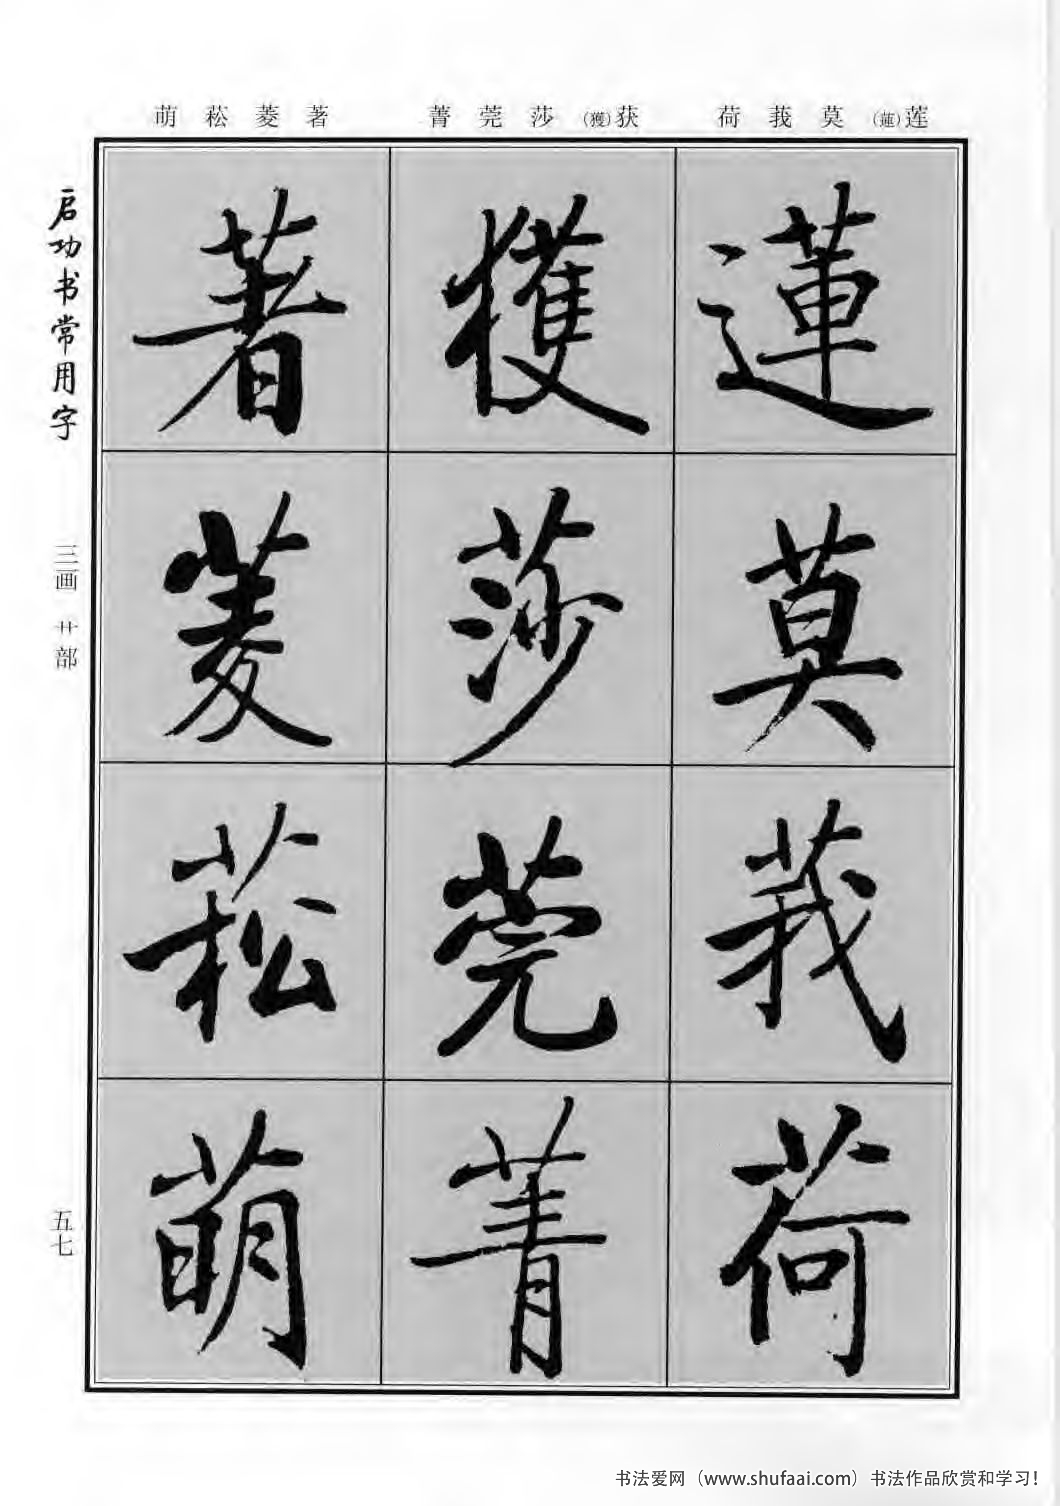 萌 菘 菱 著
菁 莞 莎 (獲)获
荷 莪 莫 (蓮)莲
启功书常用字
三画 艹部
五七
蓮
莫
莪
荷
獲
莎
莞
菁
著
菱
菘
萌
书法爱网（www.shufaai.com）书法作品欣赏和学习！